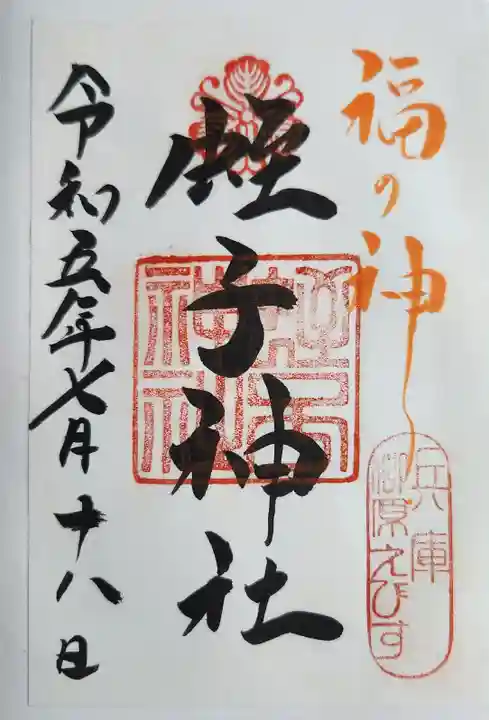 福の神
兵庫
柳原えびす
蛭子神社
蛭子神社
令和五年七月十八日